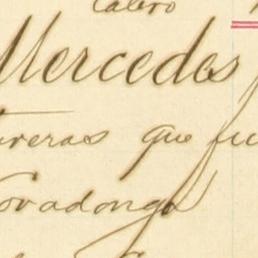 Calero
Mercedes
veras que fu
ovadonga